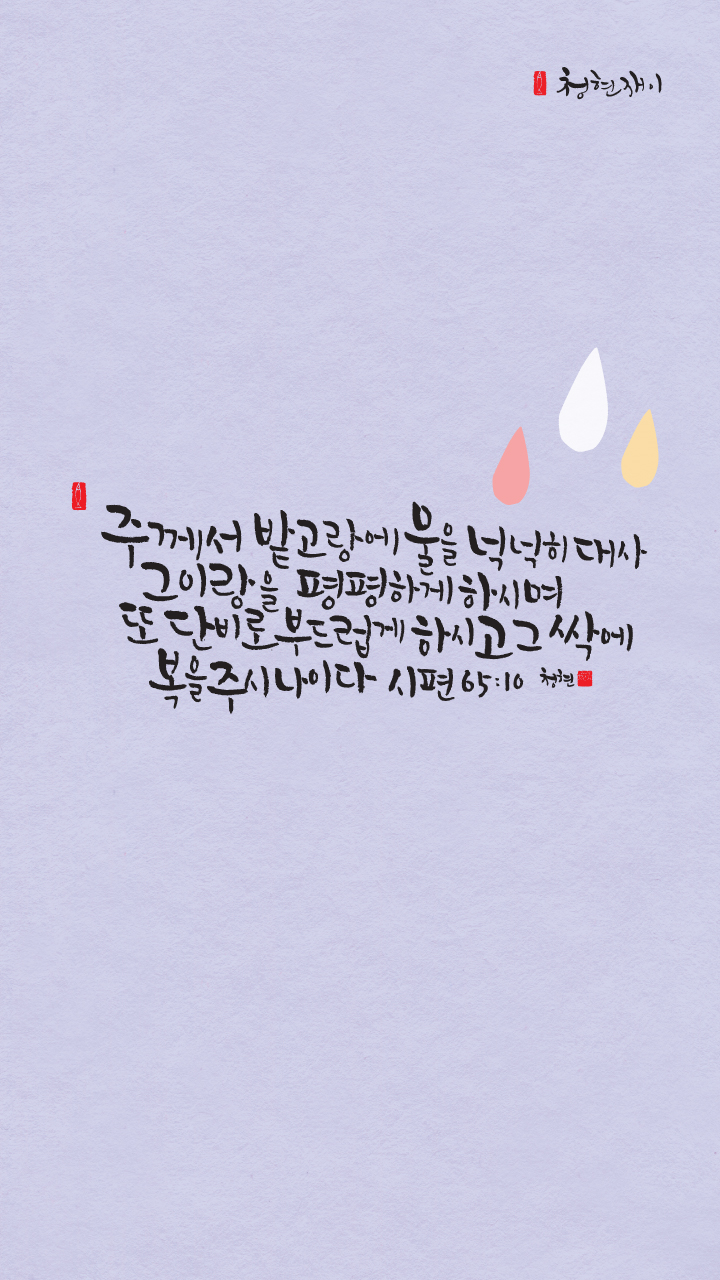 청현재이
주께서 밭고랑에 물을 넉넉히 대사
그 이랑을 평평하게 하시며
또 단비로 부드럽게 하시고 그 싹에
복을 주시나이다 시편 65:10 청현